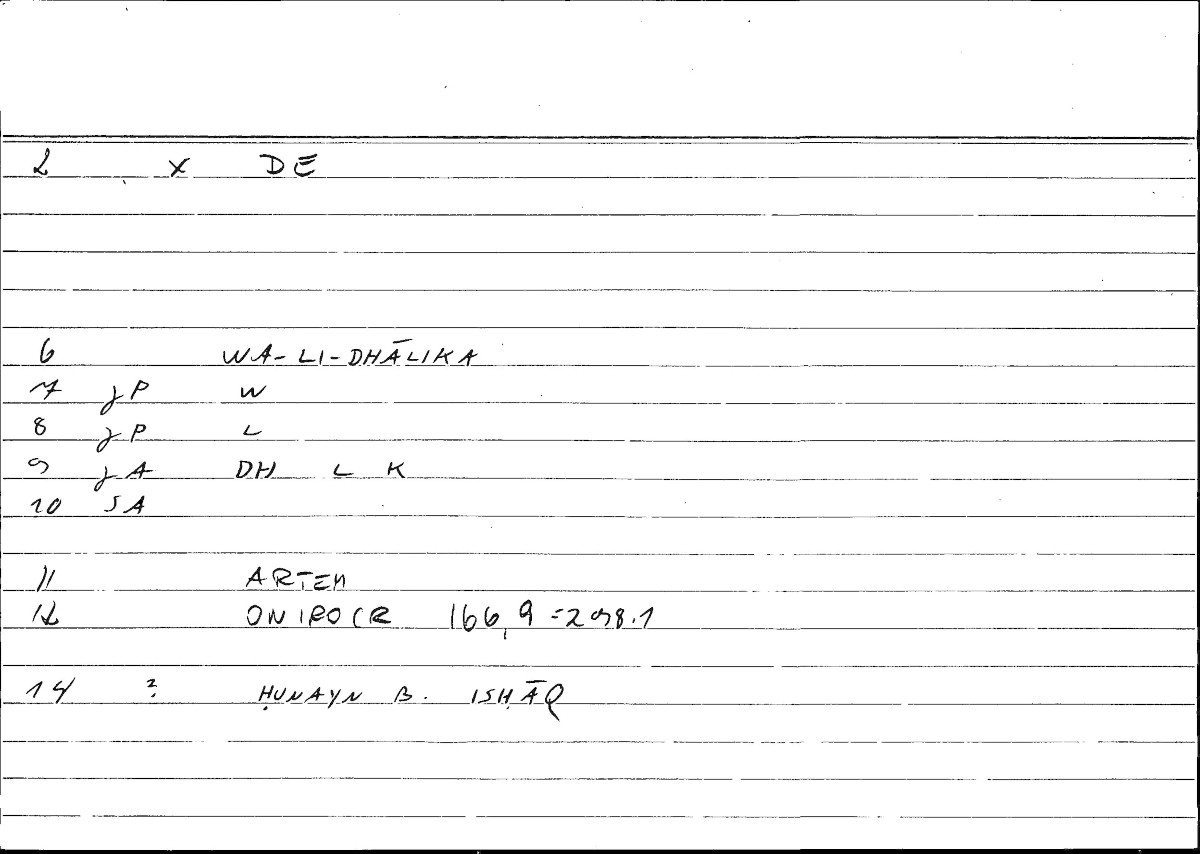 2 x DE
6 WA-LI-DHĀLIKA
7 jP W
8 jP L
9 jA DH L K
10 SA
11 ARTEM
12 ONIROCR 166,9=298.1
14 ? ḤUNAYN B. ISḤĀQ